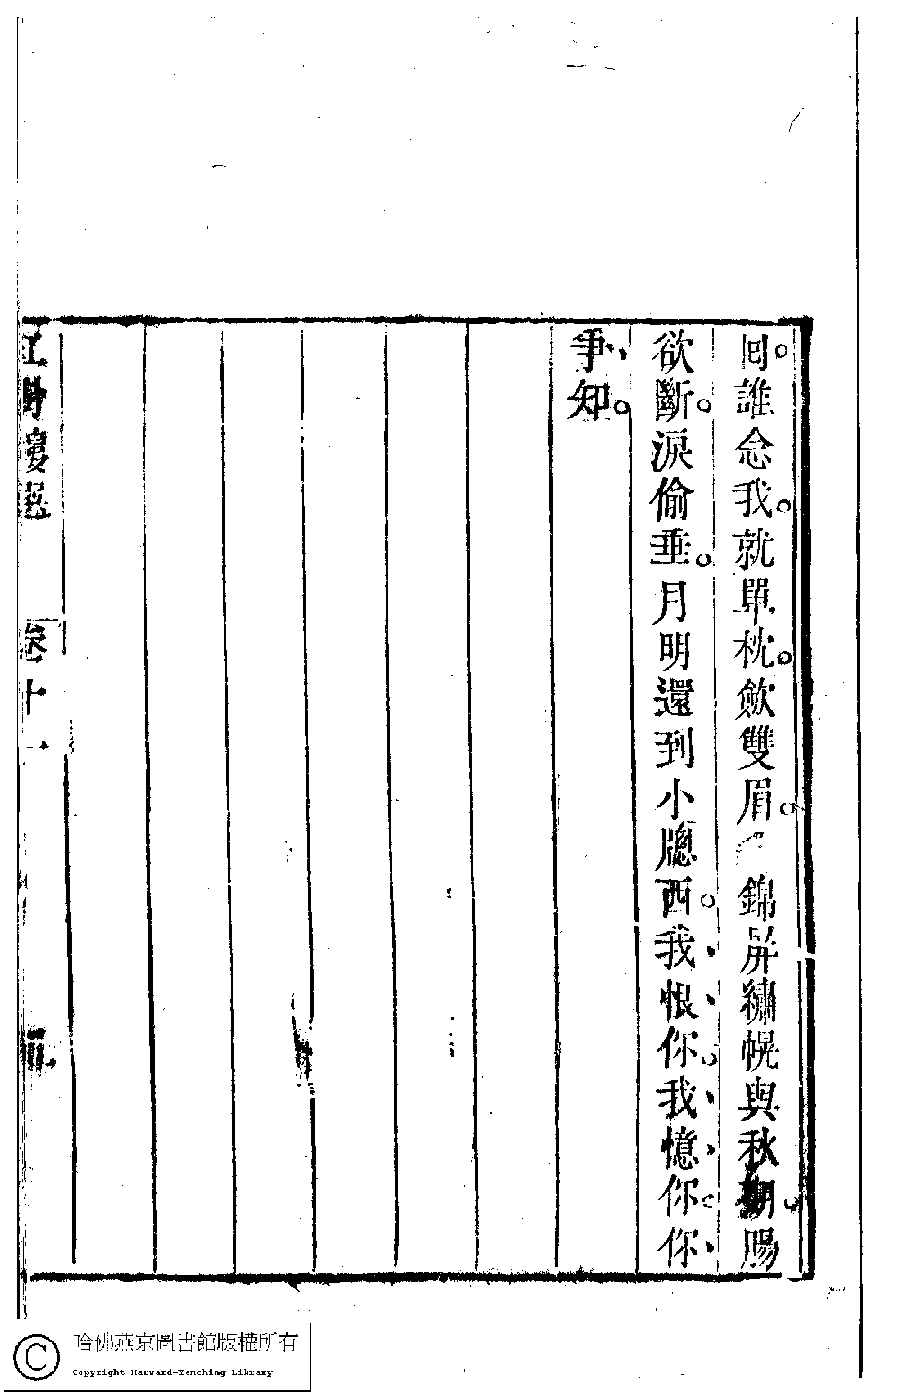 回誰念我就單枕斂雙眉 錦屏繡幌與秋期腸
欲斷淚偷垂月明還到小牕西我恨你我憶你你
爭知
卷十一
哈佛燕京圖書館版權所有
Copyright Harvard-Yenching Library